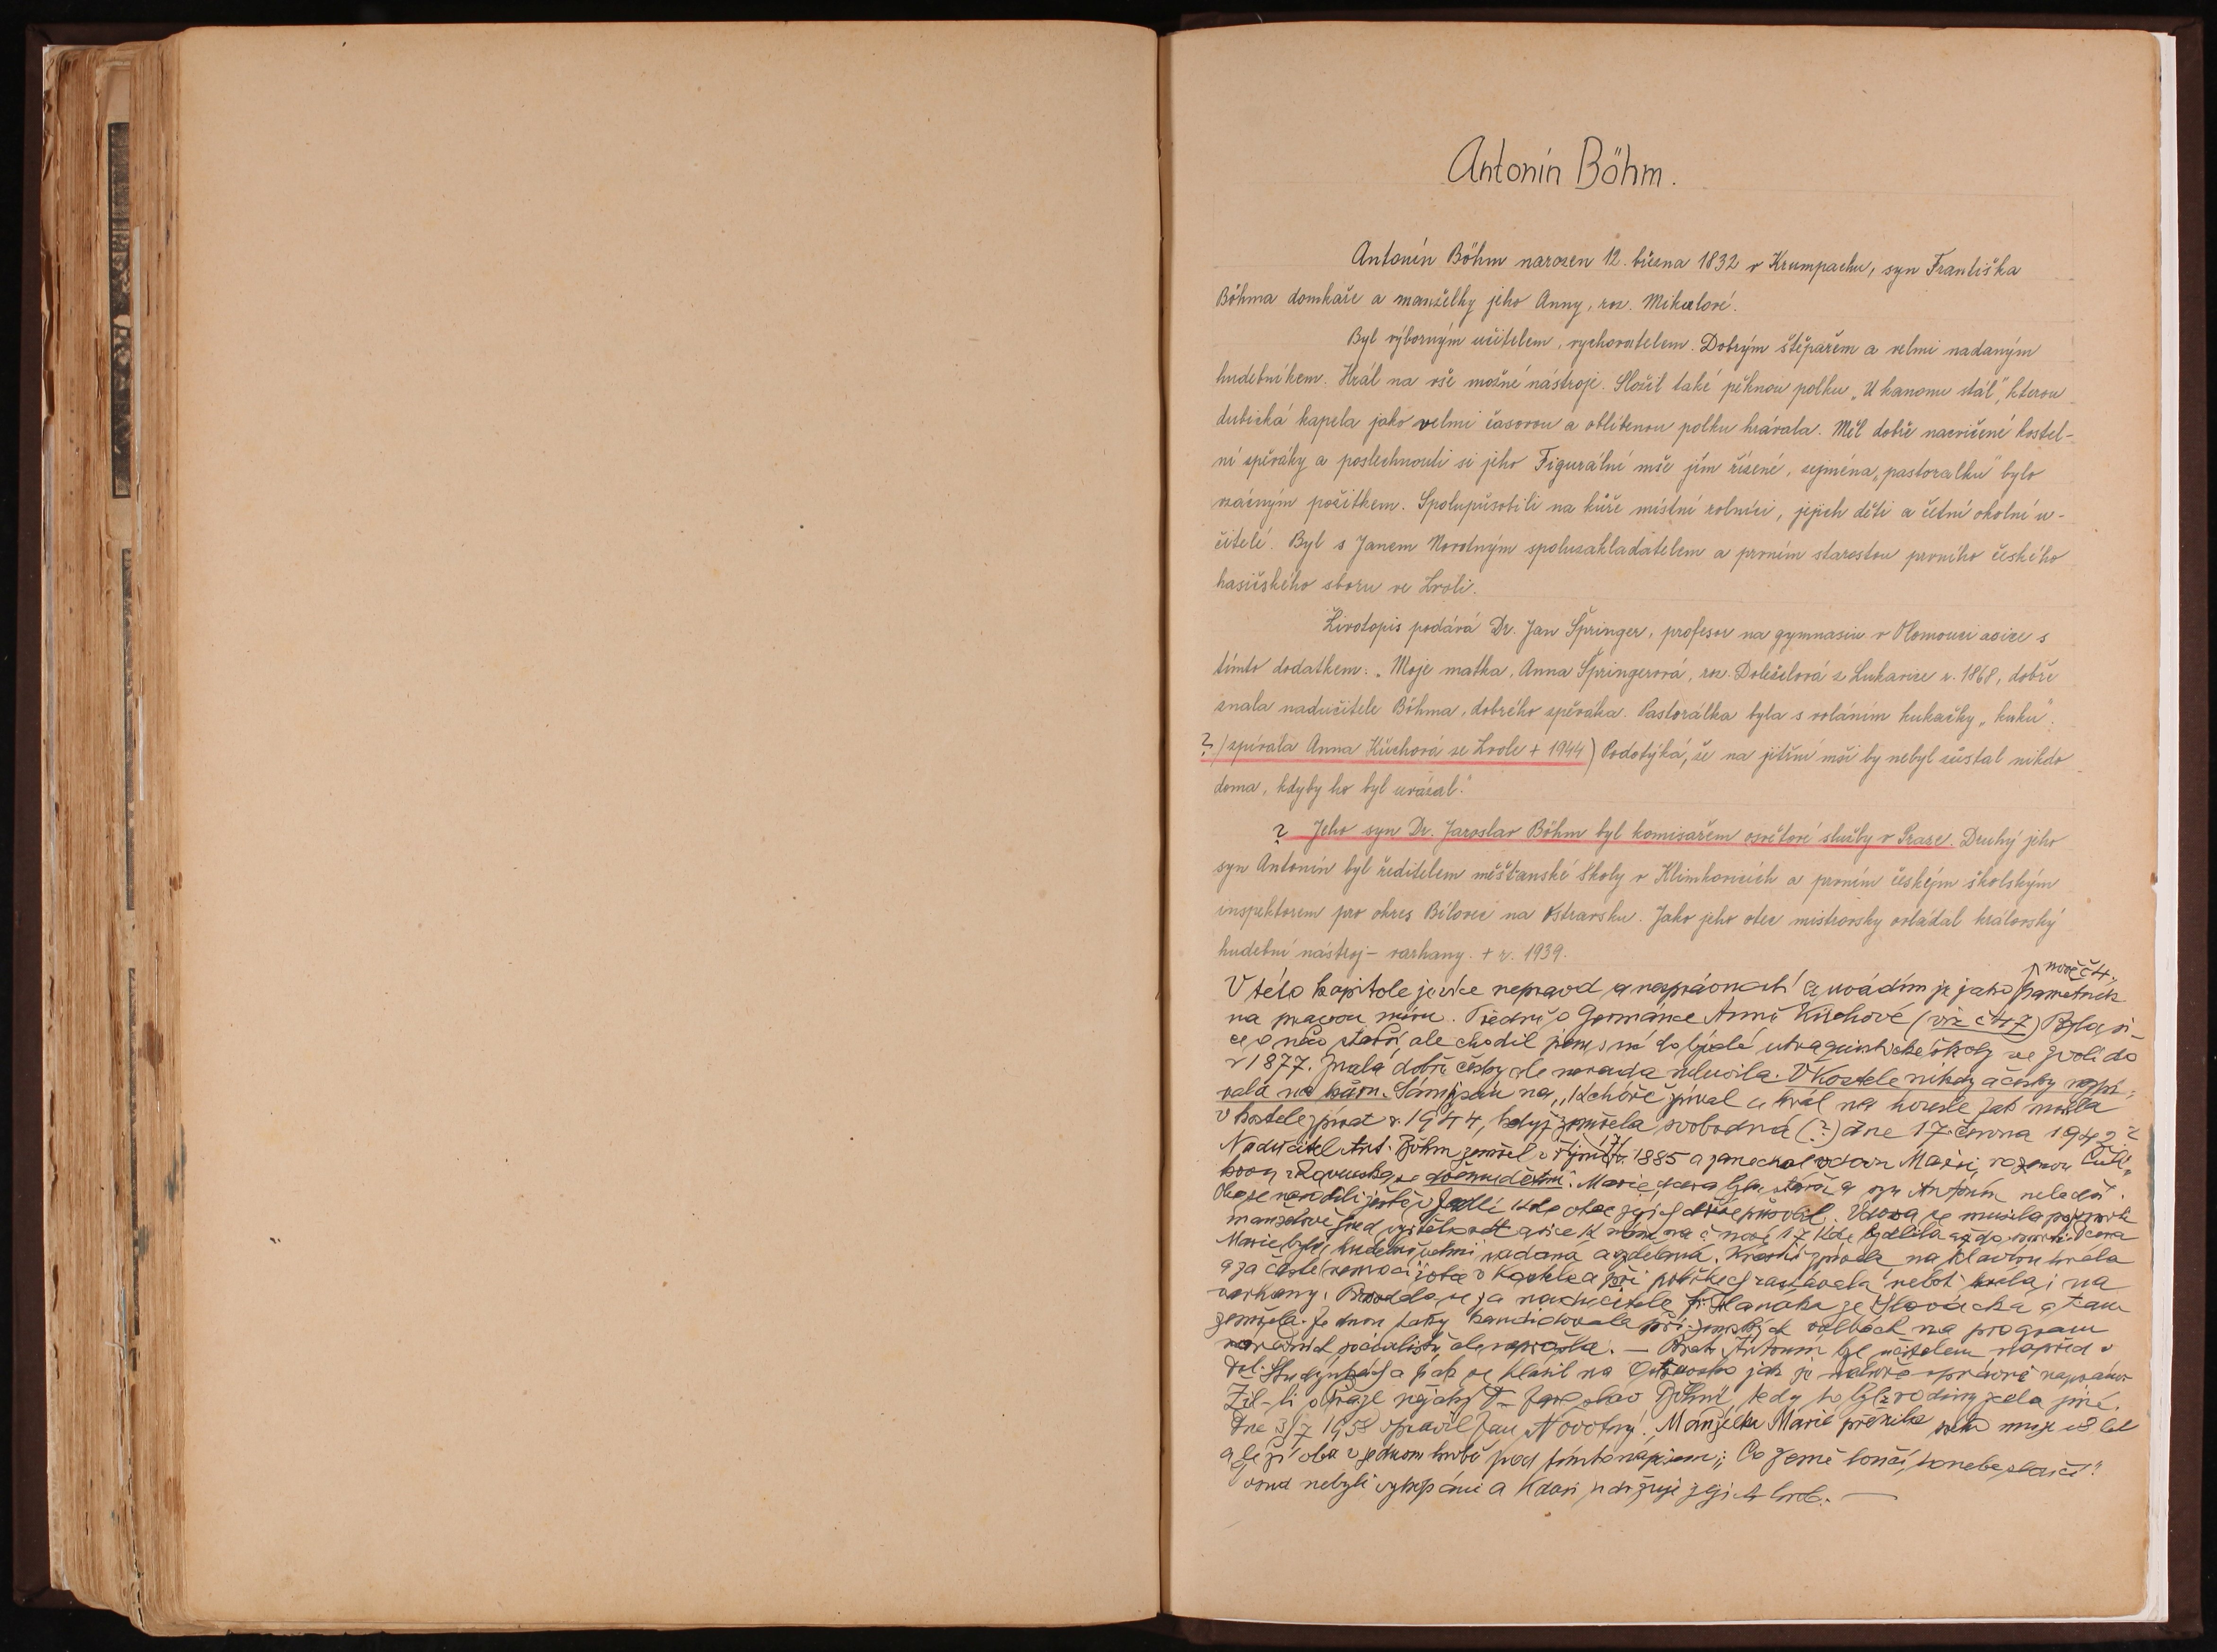 Antonín Böhm.
Antonín Böhm narozen 12. března 1832 v Krumpachu, syn Františka
Böhma domkaře a manželky jeho Anny, roz. Mikulové.
Byl výborným učitelem, vychovatelem. Dobrým štěpařem a velmi nadaným
hudebníkem. Hrál na vše možné nástroje. Složil také pěknou polku „U kanonu stál", kterou
dubická kapela jako velmi časovou a oblíbenou polku hrávala. Měl dobře nacvičené kostel-
ní zpěváky a poslechnouti si jeho Figurální mše jím řízené, zejména „pastoralku" bylo
vzácným požitkem. Spolupůsobili na kůře místní rolníci, jejich děti a četní okolní u-
čitelé. Byl s Janem Novotným spoluzakladatelem a prvním starostou prvního českého
hasičského sboru ve Zvoli.
Životopis podává Dr. Jan Špringer, profesor na gymnasiu v Olomouci a sice s
tímto dodatkem: „Moje matka, Anna Špringerová, roz. Doleželová z Lukavice r. 1868, dobře
znala nadučitele Böhma, dobrého zpěváka. Pastorálka byla s voláním kukačky „kuku".
? /zpívala Anna Küchová ze Zvole + 1944) Podotýká, že na jitřní mši by nebyl zůstal nikdo
doma, kdyby ho byl uvázal."
? Jeho syn Dr. Jaroslav Böhm byl komisařem osvětové služby v Praze. Druhý jeho
syn Antonín byl ředitelem měšťanské školy v Klimkovicích a prvním českým školským
inspektorem pro okres Bílovec na Ostravsku. Jako jeho otec mistrovsky ovládal královský
hudební nástroj - varhany. + r. 1939.
V této kapitole je více nepravd a nesprávností a uvádím je jako pamětník
na pravou míru. Předně o Germánce Anně Küchové (viz č 47) Byla si-
ce o něco starší, ale chodil jsem s ní do bývalé utraquistické školy ve Zvoli do
r 1877. Znala dobře česky ale nerada mluvila. V Kostele nikdy česky nezpí-
vala na kůru.
v kostele zpívat r. 1944, když zemřela svobodná (?) dne 17. června 1942?
Nadučitel Ant. Böhm zemřel v říjnu r. 1885 a zanechal vdovu Marii, rozenou
Marie, dcera byla starší a syn Antonín mladší.
Oba se narodili ještě v Jedlí kde otec jejich dříve působil. Vdova se musila po smrti
Marie byla hudebně velmi nadaná a vzdělaná. Krásně zpívala na klavír hrála
a za časté nemoci otce v Kostele a při pohřbech zastávala neboť hrála i na
varhany. Provdala se za nadučitele Fr. Hanáka ze Slovácka a tam
zemřela. Jednou taky kandidovala při zemských volbách na program
národních socialistů, ale neprošla. — Bratr Antonín byl učitelem napřed v
Dol. Studýnkách a pak se hlásil na Ostravsko jak je nahoře správně napsáno
Žil-li v Praze nějaký Dr Jaroslav Böhm, tedy to byl z rodiny zcela jiné.
Dne 3/7 1958 opravil Jan Novotný. Manželka Marie přežila svého muže o 8 let
a leží oba v jednom hrobě pod tímto nápisem: „Co země loučí, to nebe sloučí"